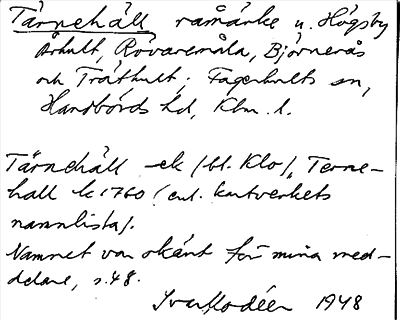 Tärnehäll råmärke u. Högsby
Århult, Rövaremåla, Björnerås
och Träthult; Fagerhults sn,
Handbörds hd, Klm. l.
Tärnehäll ek (bl. Klo), Terne-
hall k 1760 (enl. lantverkets
namnlista).
Namnet var okänt för mina med-
delare, s. 48.
Ivar Modéer 1948